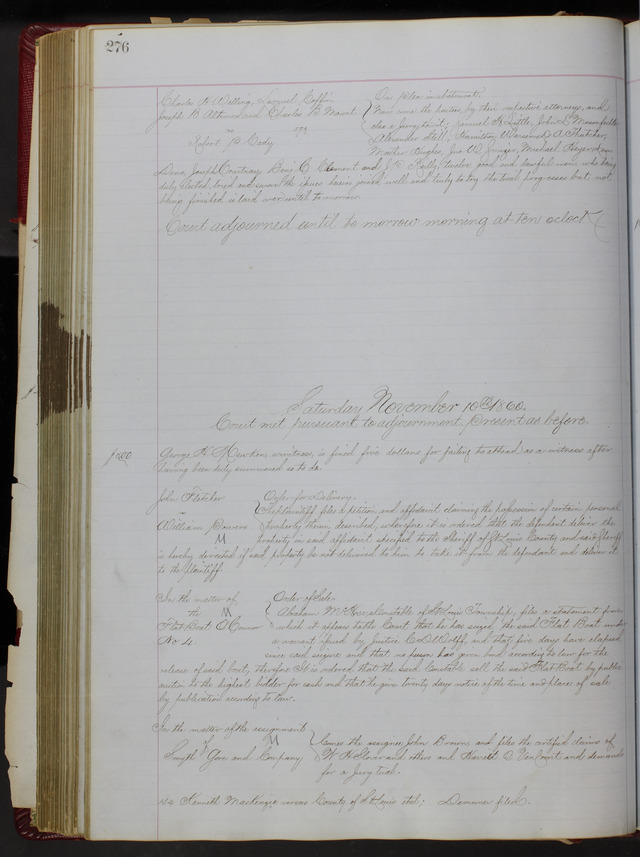 276
Charles A Walling, Samuel Coffin
Joseph B Alt and Charles B Mount
vs 199
Robert B Cady
On plea in abatement.
Now come the parties by their respective attorneys, and
also a Jury to wit; Samuel H Suttle, John L
Alexander Bell, Hamilton A Thatcher,
Martin Jno W Michael
Joseph Benj C Clement and J R Kelly, twelve good and lawful men, who being
duly elected, tried and sworn the issues herein joined well and truly to try the trial progresses but not
being finished is laid over until tomorrow.
Court adjourned until to morrow morning at ten oclock
Saturday November 10th 1860.
Court met pursuant to adjournment, Present as before.
George H witness, is fined five dollars for failing to attend as a witness after
having been duly summoned so to do.
John Fletcher
vs
William Bowers
M
Order for Delivery.
Plaintiff files a petition and affidavit claiming the possession of certain personal
property therein described, wherefore it is ordered that the defendant deliver the
property in said affidavit specified to the Sheriff of St Louis County and said Sheriff
is hereby directed if said property be not delivered to him to take it from the defendant and deliver it
to the plaintiff.
In the matter of
the M
Flat Boat
No 4.
Order of Sale.
Abraham Constable of St Louis Township, files a statement from
which it appears to the Court that he has seized the said Flat Boat under
a warrant issued by Justice and that five days have elapsed
since said seizure and that no person has given bond according to law for the
release of said boat, therefore It is ordered that the said Constable sell the said Flat Boat by public
auction to the highest bidder for cash and that he give twenty days notice of the time and place of sale
by publication according to law.
In the matter of the assignment
of M
Smyth Gore and Company
Comes the assignee John Brown and files the certified claims of
W H Glover and others and and demands
for a Jury trial.
Kenneth Mackenzie versus County of St Louis etal; Demurrer filed.